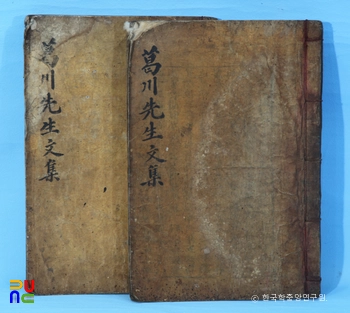 葛川先生文集
葛川先生文集
© 한국학중앙연구원